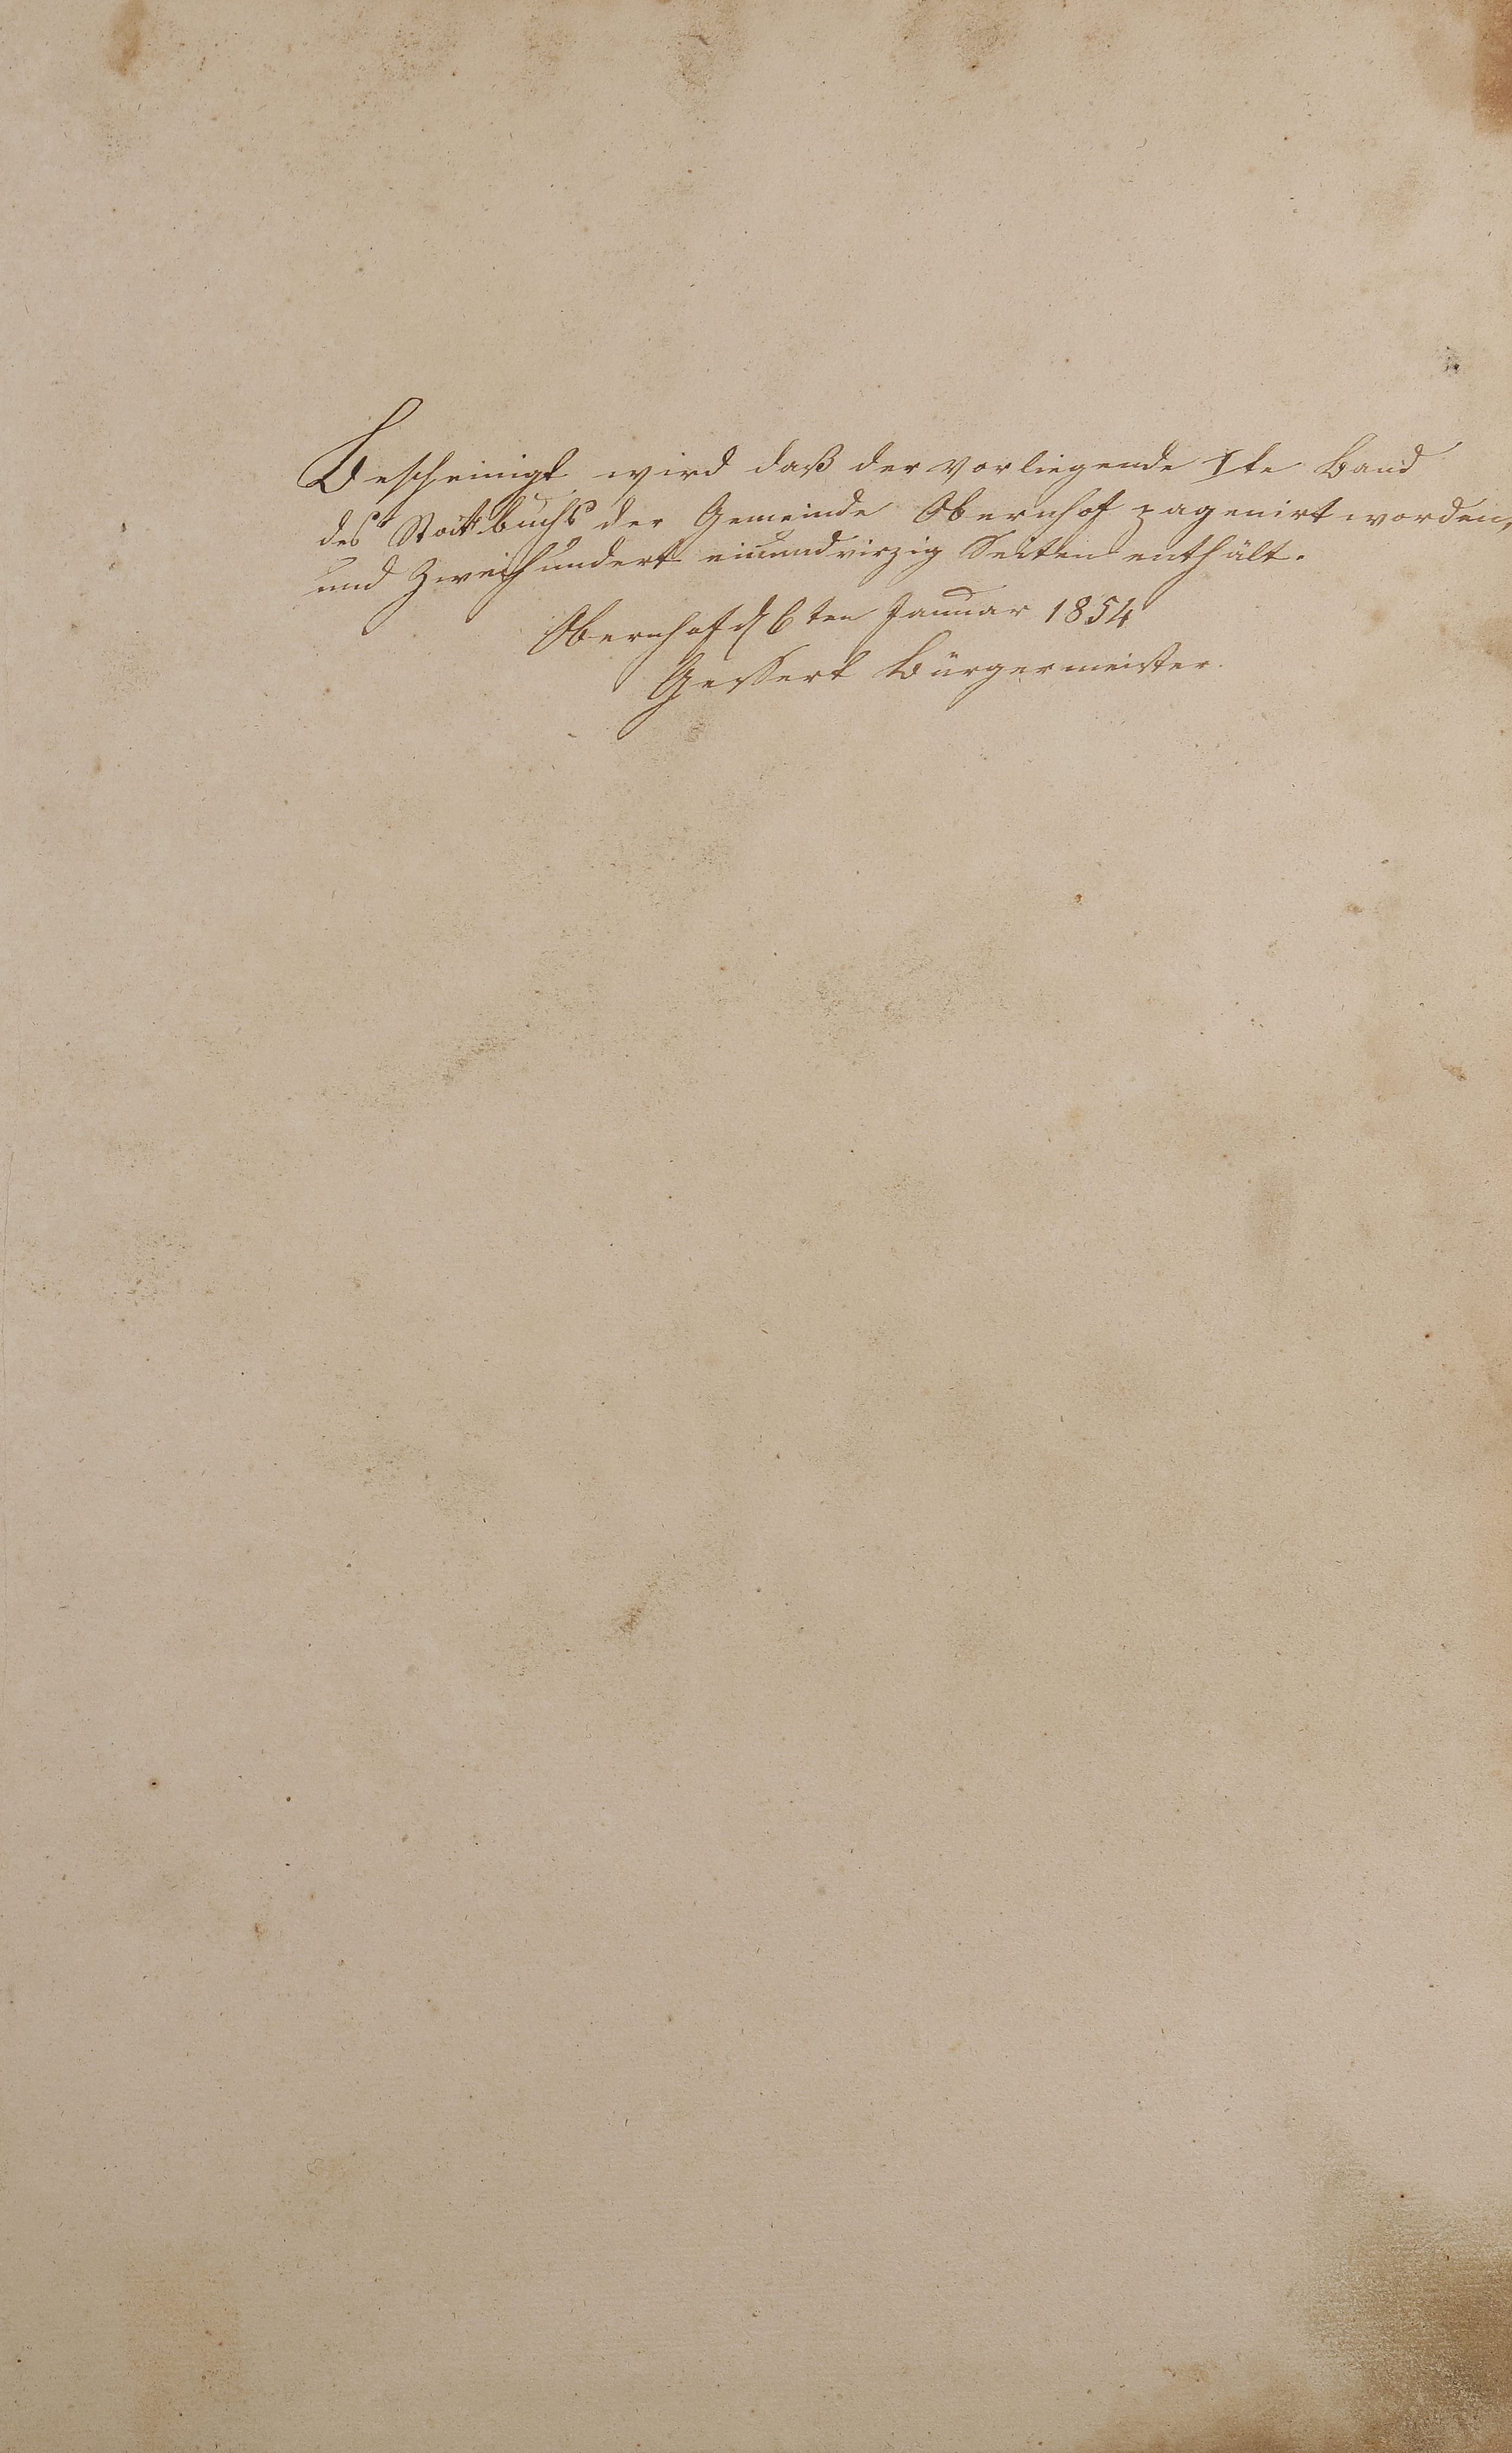 Bescheinigt wird daß der vorliegende 1te Band
des Stockbuchs der Gemeinde Obernhof pagenirt worden,
und Zweihundert einundvirzig Seiten enthält.
Obernhof d 6ten Januar 1854
Gessert Bürgermeister.